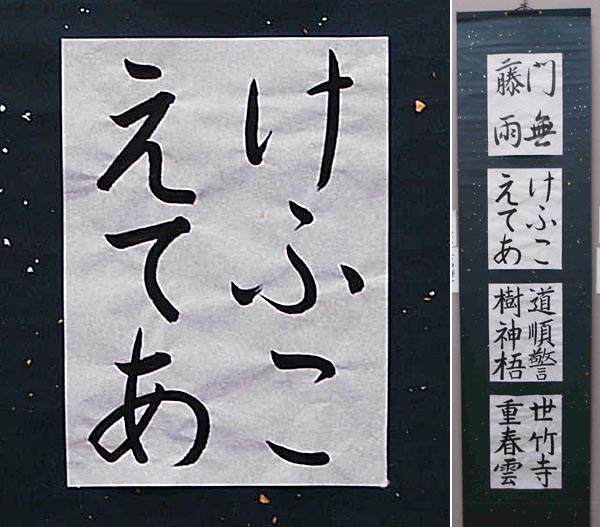 けふこ
えてあ
門無
藤雨
けふこ
えてあ
道順警
樹神梧
世竹寺
重春雲